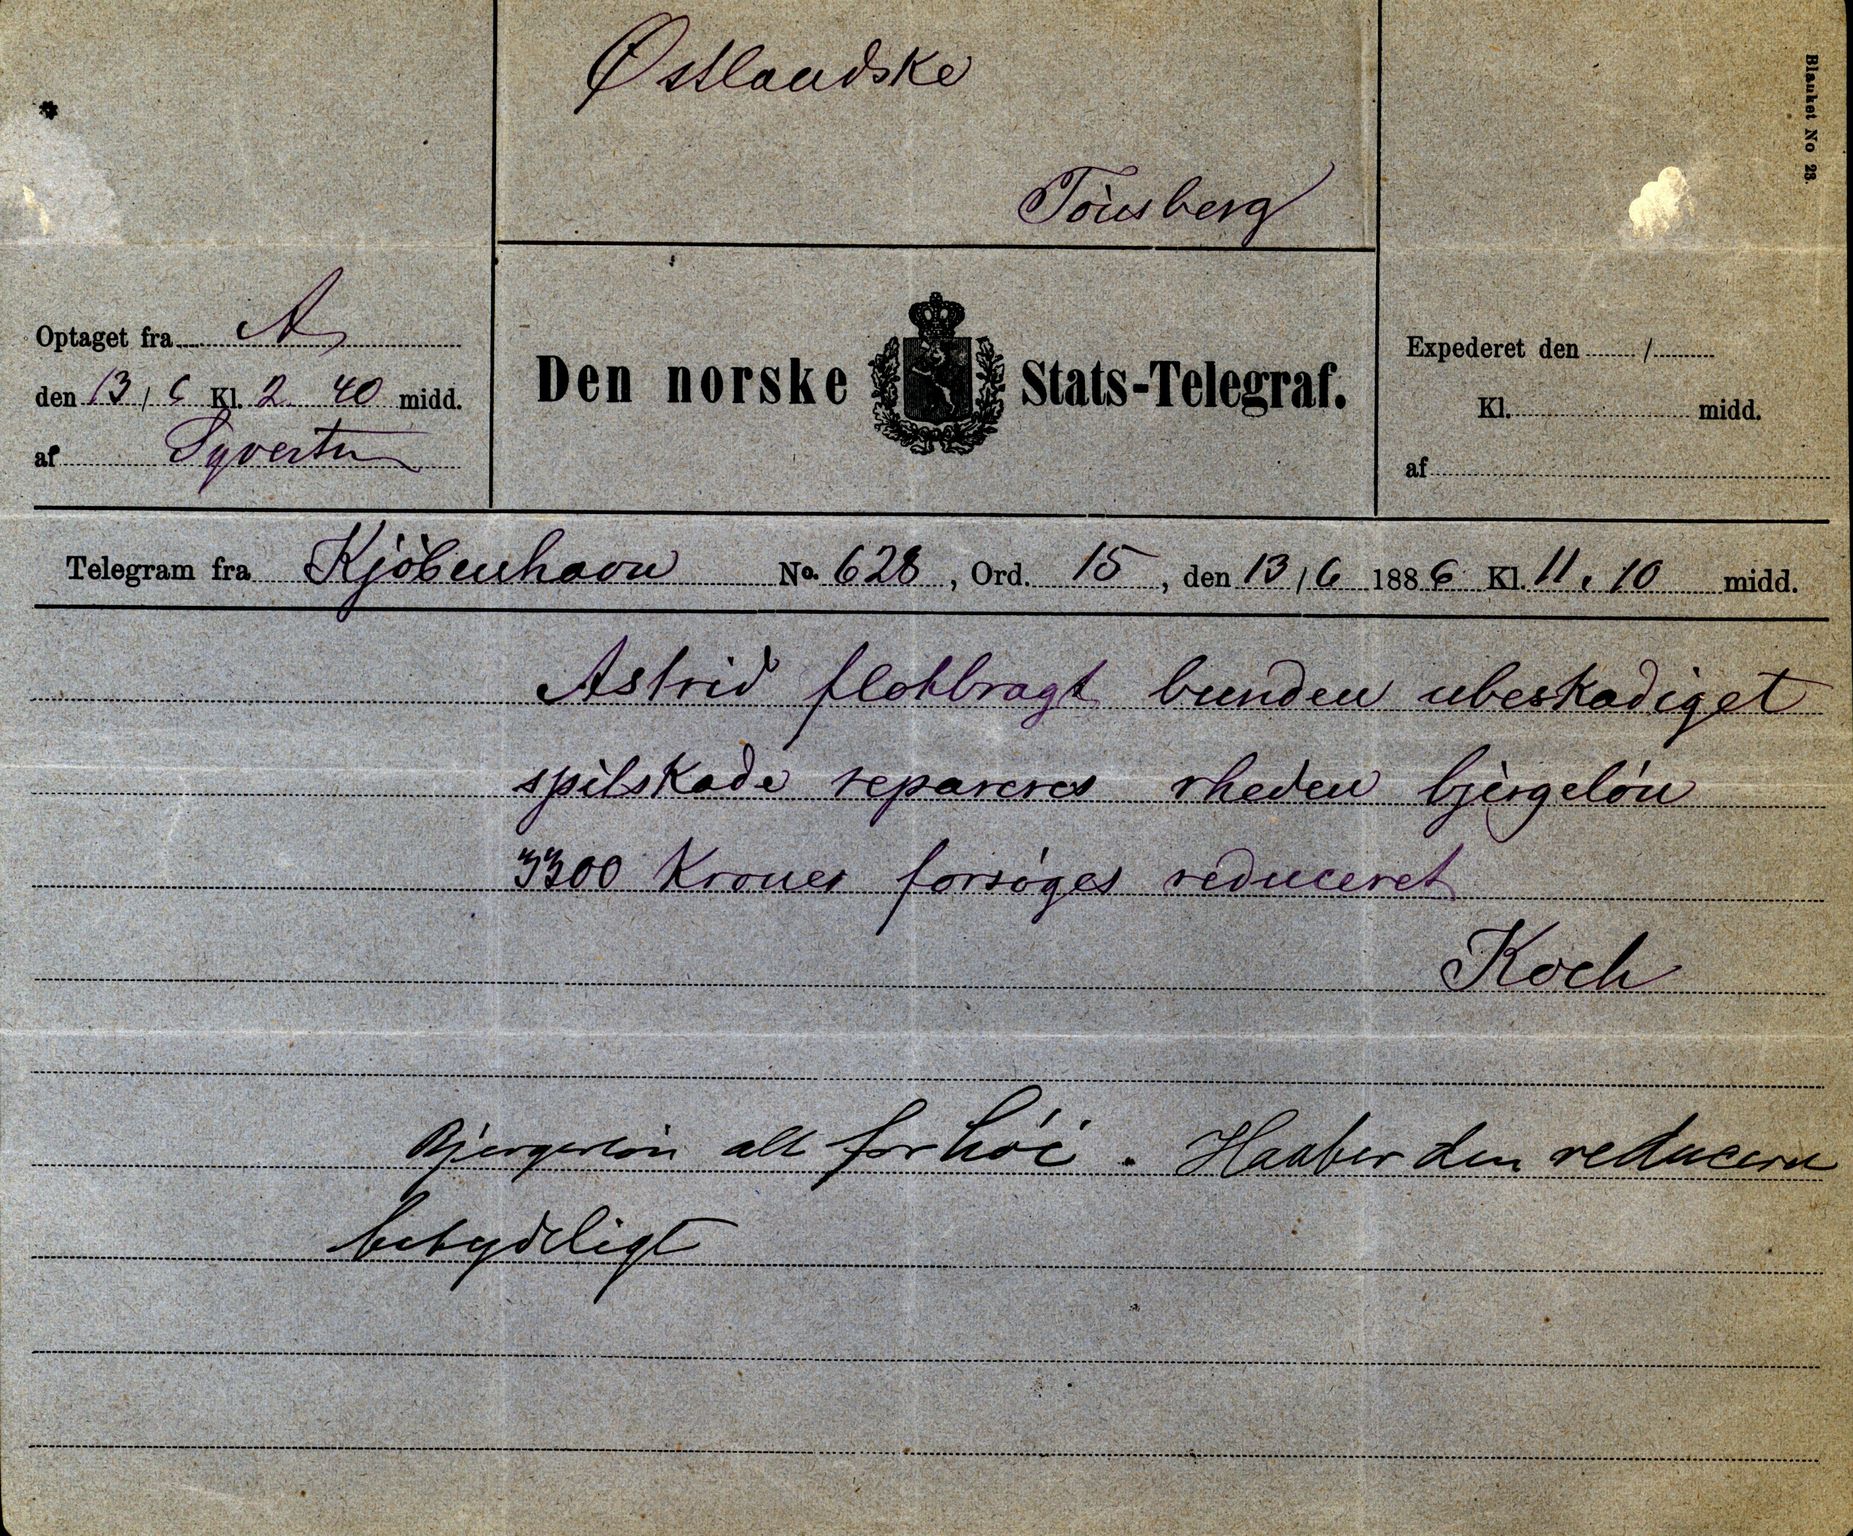 Østlandske
Tönsberg
Blanket No 23.
Optaget fra A
den 13/6 Kl. 2 40 midd.
af Syvertsen
Den norske Stats-Telegraf.
Expederet den /
Kl. midd.
af
Telegram fra Kjöbenhavn No. 628, Ord. 15, den 13/6 1886 Kl. 11.10 midd.
Astrid flotbragt bunden ubeskadiget
spilskade repareres rheden bjergelön
3300 Kroner forsöges reduceret
Koch
Bjergelön alt for höi. Haaber den reduceres
betydeligt